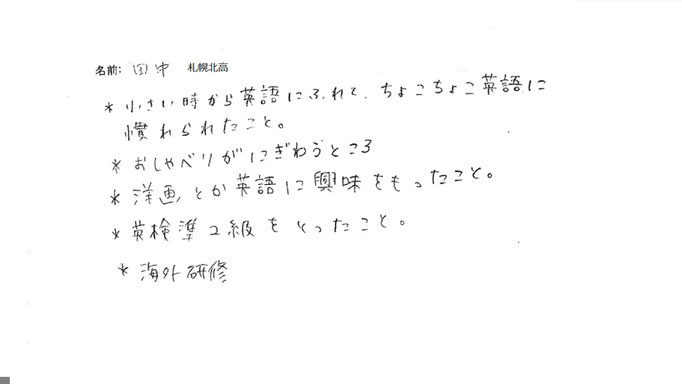 名前: 田中 札幌北高
* 小さい時から英語にふれて、ちょこちょこ英語に
慣れられたこと。
* おしゃべりがにぎわうところ
* 洋画とか英語に興味をもったこと。
* 英検準2級をとったこと。
* 海外研修